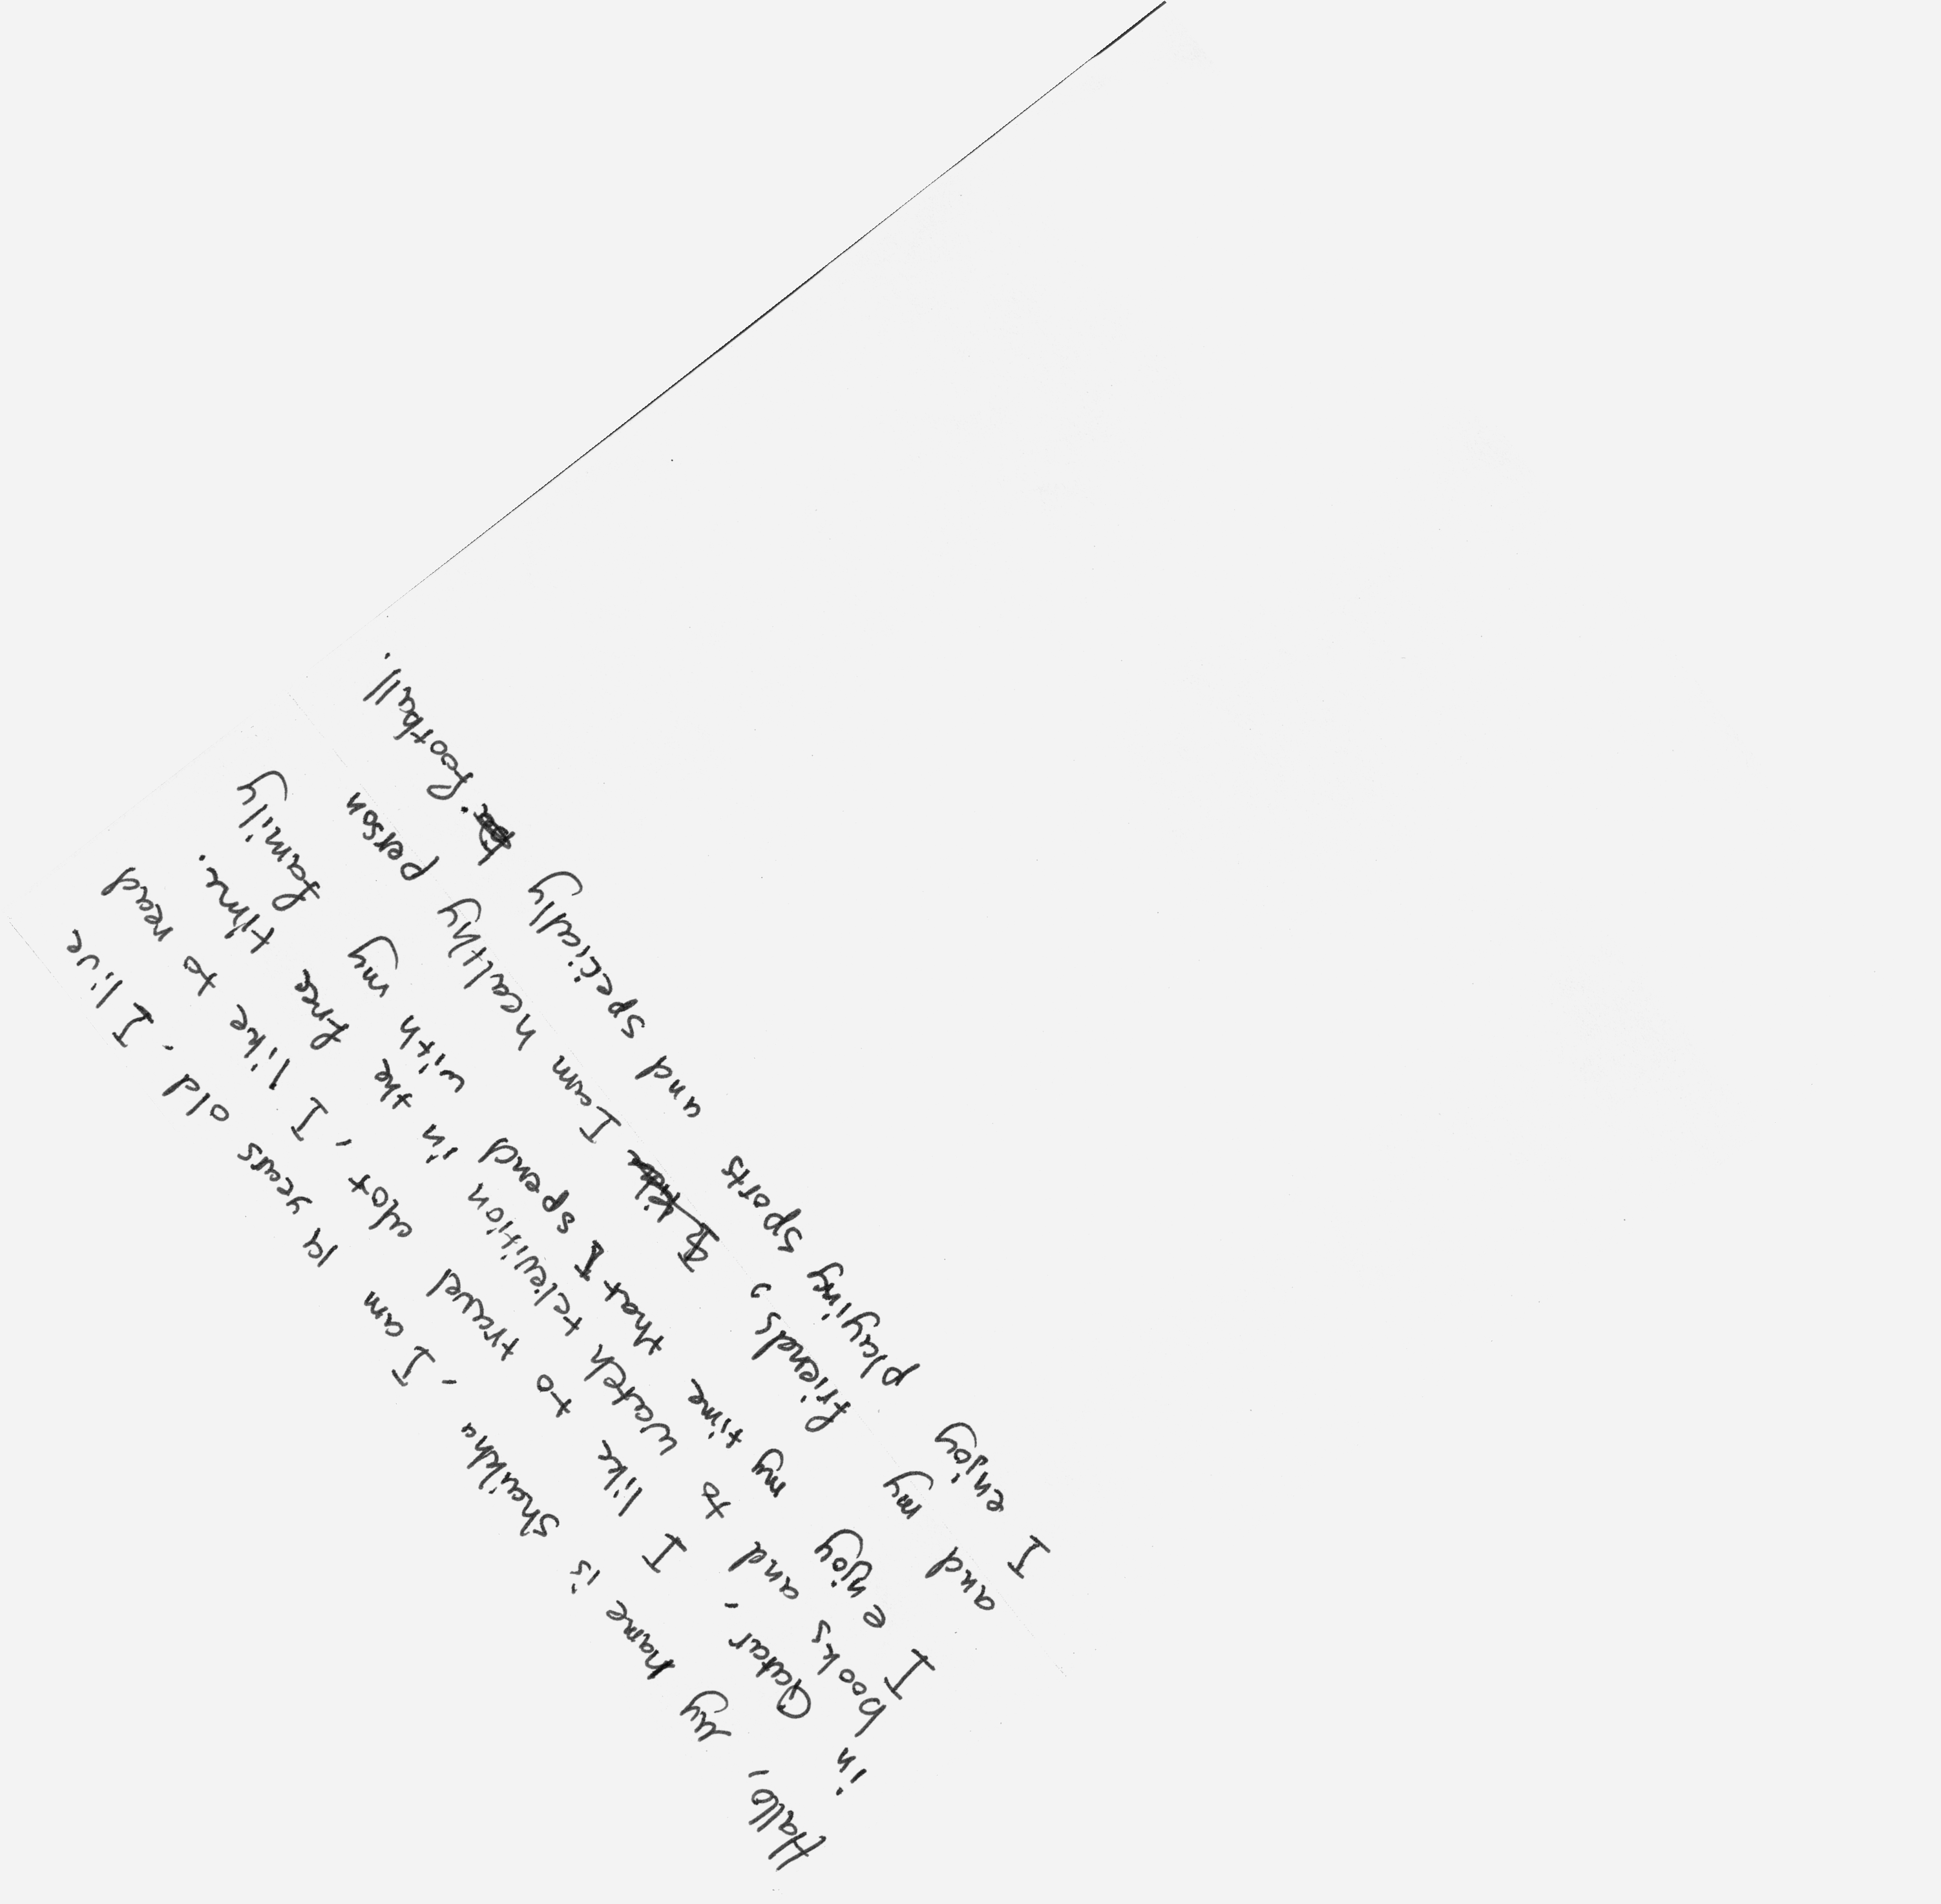 Hallo, My name is shaikha, I am 14 years old. I live
in Qatar, I like to travel alot, I like to read
books and to watch televition in the free time.
I enjoy my time that I spend with my family
and my friends, I am healthy person
I enjoy playing sports and specially football.